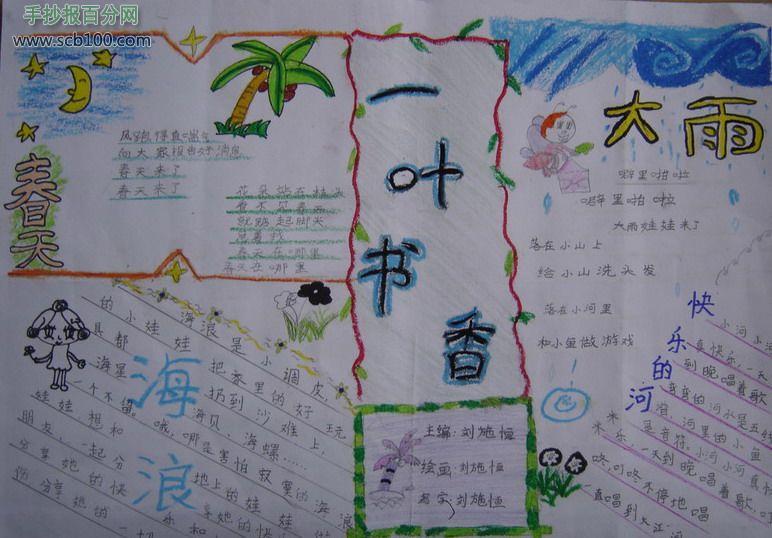 手抄报百分网
www.scb100.com
春天
向大家报告好消息
春天来了
春天来了
花朵站在枝头
看不见春天
踮起脚尖
春天在哪里
春天在哪里
一叶书香
大雨
噼里啪啦
噼里啪啦
大雨娃娃来了
落在小山上
给小山洗头发
落在小河里
和小鱼做游戏
快乐的河
小河小河
真快乐,一天
到晚唱着歌
河里的小鱼
是音符,小河小河真快
乐,一天到晚唱着歌,叮
咚,叮咚不停地唱
一直唱到大江河
海浪
海浪是小调皮,
把家里的好玩
具都扔到沙滩上,
海星、海贝、海螺……
一个不留。哦,哪是害怕寂寞的海浪
娃娃想和地上的娃娃
朋友,一起分
分享她的快
主编:刘施恒
绘画:刘施恒
名字:刘施恒